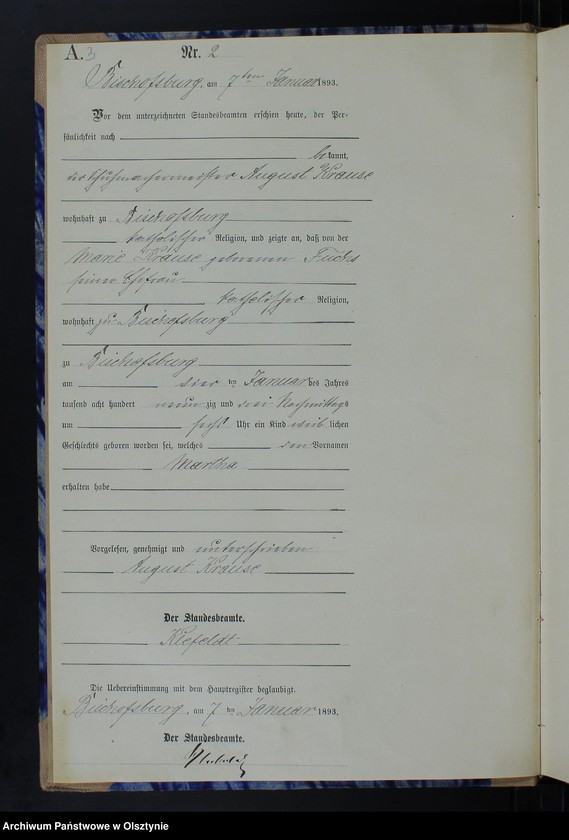 A. 3 Nr. 2
Bischofsburg, am 7ten Januar 1893.
Vor dem unterzeichneten Standesbeamten erschien heute, der Per-
sönlichkeit nach
bekannt,
der Schuhmachermeister August Krause
wohnhaft zu Bischofsburg
katholischer Religion, und zeigte an, daß von der
Marie Krause geborenen Fuchs
seiner Ehefrau
katholischer Religion,
wohnhaft zu Bischofsburg
zu Bischofsburg
am vier ten Januar des Jahres
tausend acht hundert neunzig und drei Nachmittags
um sechs Uhr ein Kind weiblichen
Geschlechts geboren worden sei, welches den Vornamen
Martha
erhalten habe
Vorgelesen, genehmigt und unterschrieben
August Krause
Der Standesbeamte.
Klefeldt
Die Uebereinstimmung mit dem Hauptregister beglaubigt.
Bischofsburg, am 7 ten Januar 1893.
Der Standesbeamte.
Archiwum Państwowe w Olsztynie